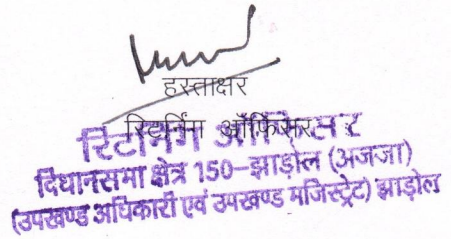 हस्ताक्षर
रिटर्निंग ऑफिसर
रिटर्निंग ऑफिसर
विधानसभा क्षेत्र 150-झाड़ोल (अजजा)
(उपखण्ड अधिकारी एवं उपखण्ड मजिस्ट्रेट) झाड़ोल